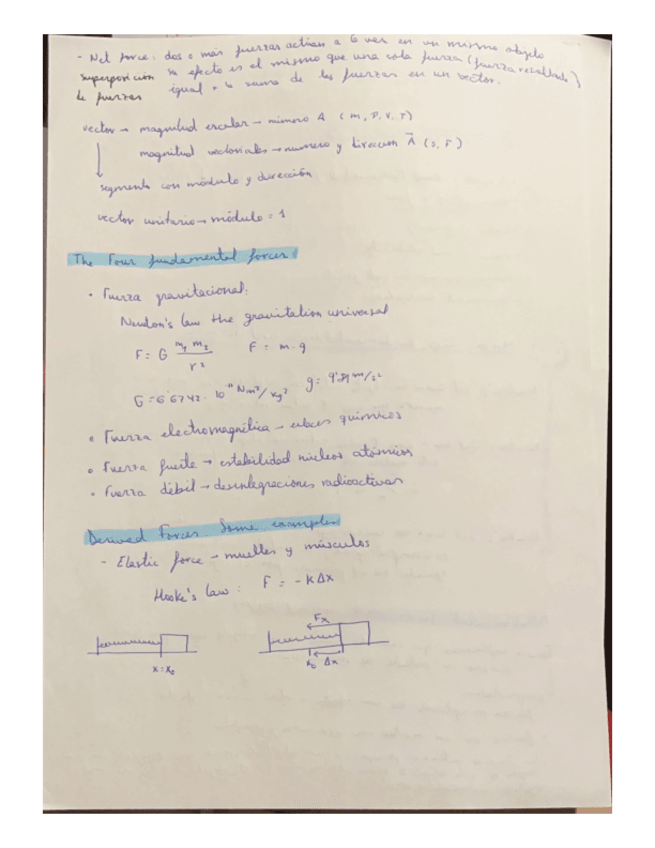 - Net force: dos o más fuerzas actúan a la vez en un mismo objeto
superposición su efecto es el mismo que una sola fuerza (fuerza resultante)
de fuerzas igual a la suma de las fuerzas en un vector.
vector → magnitud escalar → número A (m, P, V, T)
magnitud vectoriales → numero y direccion A⃗ (s, F)
segmento con módulo y dirección
vector unitario → módulo = 1
The Four fundamental forces:
• Fuerza gravitacional:
Newton's law the gravitation universal
F = G m₁ m₂ / r² F = m · g
G = 6'6742 · 10⁻¹¹ Nm²/kg² g = 9'81 m/s²
• Fuerza electromagnética → enlaces químicos
• Fuerza fuerte → estabilidad núcleos atómicos
• Fuerza débil → desintegraciones radioactivas
Derived Forces. Some examples
- Elastic force → muelles y músculos
Hooke's law: F = -KΔx
Fx
x = x₀ x₀ Δx